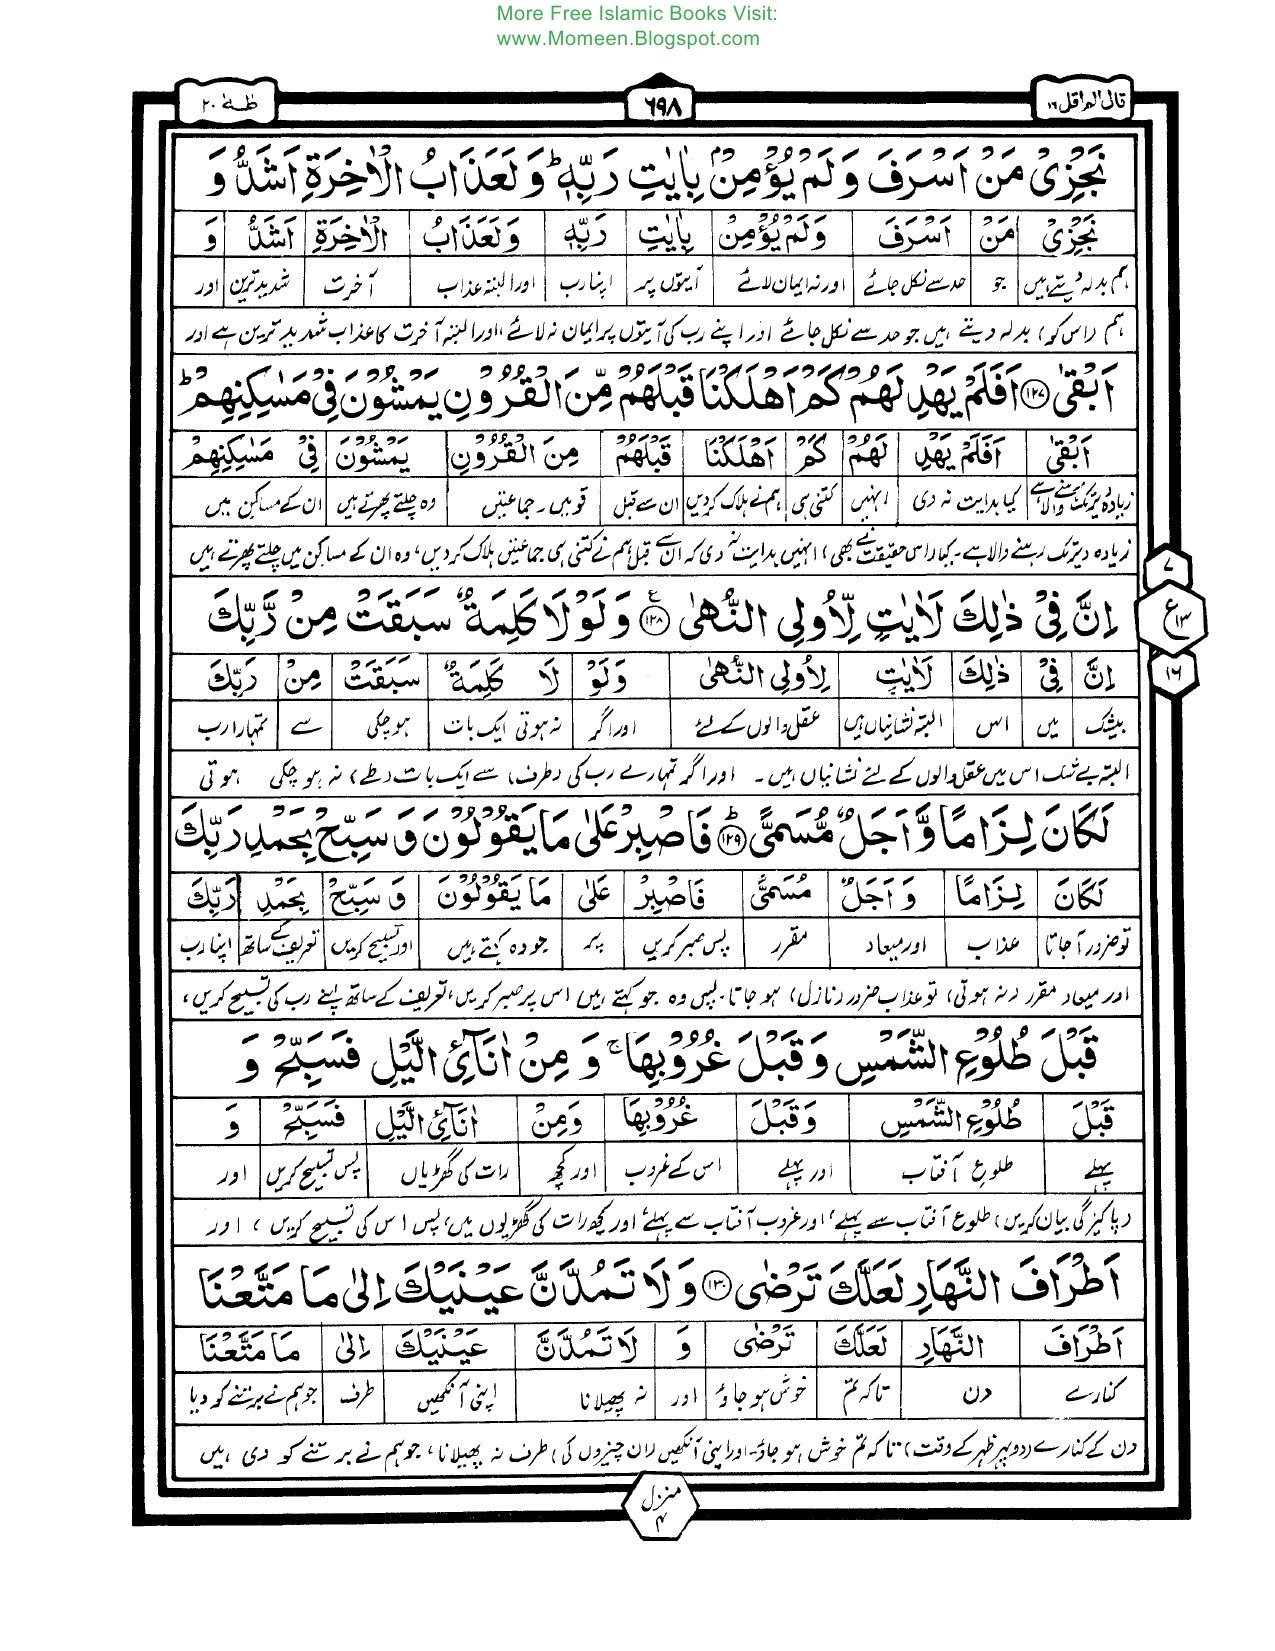 More Free Islamic Books Visit:
www.Momeen.Blogspot.com
قال الم اقل ١٦
٦٩٨
طٰهٰ ٢٠
نَجْزِیْ مَنْ اَسْرَفَ وَ لَمْ یُؤْمِنْۢ بِاٰیٰتِ رَبِّهٖ ؕ وَ لَعَذَابُ الْاٰخِرَةِ اَشَدُّ وَ
نَجْزِیْ مَنْ اَسْرَفَ وَ لَمْ یُؤْمِنْۢ بِاٰیٰتِ رَبِّهٖ وَ لَعَذَابُ الْاٰخِرَةِ اَشَدُّ وَ
ہم بدلہ دیتے ہیں جو حد سے نکل جائے اور نہ ایمان لائے آیتوں پر اپنا رب اور البتہ عذاب آخرت شدید ترین اور
ہم (اس کو) بدلہ دیتے ہیں جو حد سے نکل جائے اور اپنے رب کی آیتوں پر ایمان نہ لائے، اور البتہ آخرت کا عذاب شدید ترین ہے اور
اَبْقٰی ١٢٧ اَفَلَمْ یَهْدِ لَهُمْ كَمْ اَهْلَكْنَا قَبْلَهُمْ مِّنَ الْقُرُوْنِ یَمْشُوْنَ فِیْ مَسٰكِنِهِمْ ؕ
اَبْقٰی اَفَلَمْ یَهْدِ لَهُمْ كَمْ اَهْلَكْنَا قَبْلَهُمْ مِنَ الْقُرُوْنِ یَمْشُوْنَ فِیْ مَسٰكِنِهِمْ
زیادہ دیر تک رہنے والا ہے کیا ہدایت نہ دی انہیں کتنی ہی ہم نے ہلاک کردیں ان سے قبل قومیں۔ جماعتیں وہ چلتے پھرتے ہیں ان کے مساکن میں
زیادہ دیر تک رہنے والا ہے۔ کیا (اس حقیقت نے بھی) انہیں ہدایت نہ دی کہ ان سے قبل ہم نے کتنی ہی جماعتیں ہلاک کردیں، وہ ان کے مساکن میں چلتے پھرتے ہیں
اِنَّ فِیْ ذٰلِكَ لَاٰیٰتٍ لِّاُولِی النُّهٰی ١٢٨ ع وَ لَوْ لَا كَلِمَةٌ سَبَقَتْ مِنْ رَّبِّكَ
اِنَّ فِیْ ذٰلِكَ لَاٰیٰتٍ لِاُولِی النُّهٰی وَ لَوْ لَا كَلِمَةٌ سَبَقَتْ مِنْ رَبِّكَ
بیشک میں اس البتہ نشانیاں ہیں عقل والوں کے لئے اور اگر نہ ہوتی ایک بات ہو چکی سے تمہارا رب
البتہ بے شک اس میں عقل والوں کے لئے نشانیاں ہیں۔ اور اگر تمہارے رب کی (طرف) سے ایک بات (طے) نہ ہو چکی ہوتی
لَكَانَ لِزَامًا وَّ اَجَلٌ مُّسَمًّی ؕ ١٢٩ فَاصْبِرْ عَلٰی مَا یَقُوْلُوْنَ وَ سَبِّحْ بِحَمْدِ رَبِّكَ
لَكَانَ لِزَامًا وَ اَجَلٌ مُسَمًّی فَاصْبِرْ عَلٰی مَا یَقُوْلُوْنَ وَ سَبِّحْ بِحَمْدِ رَبِّكَ
تو ضرور آجاتا عذاب اور میعاد مقرر پس صبر کریں پر جو وہ کہتے ہیں اور تسبیح کریں تعریف کے ساتھ اپنا رب
اور میعاد مقرر (نہ ہوتی) تو عذاب ضرور (نازل) ہو جاتا۔ پس وہ جو کہتے ہیں اس پر صبر کریں، تعریف کے ساتھ اپنے رب کی تسبیح کریں،
قَبْلَ طُلُوْعِ الشَّمْسِ وَ قَبْلَ غُرُوْبِهَا ۚ وَ مِنْ اٰنَآئِ الَّیْلِ فَسَبِّحْ وَ
قَبْلَ طُلُوْعِ الشَّمْسِ وَ قَبْلَ غُرُوْبِهَا وَ مِنْ اٰنَآئِ الَّیْلِ فَسَبِّحْ وَ
پہلے طلوع آفتاب اور پہلے اس کے غروب اور کچھ رات کی گھڑیاں پس تسبیح کریں اور
(پاکیزگی بیان کریں) طلوع آفتاب سے پہلے، اور غروب آفتاب سے پہلے، اور کچھ رات کی گھڑیوں میں، پس اس کی تسبیح کریں، اور
اَطْرَافَ النَّهَارِ لَعَلَّكَ تَرْضٰی ١٣٠ وَ لَا تَمُدَّنَّ عَیْنَیْكَ اِلٰی مَا مَتَّعْنَا
اَطْرَافَ النَّهَارِ لَعَلَّكَ تَرْضٰی وَ لَا تَمُدَّنَّ عَیْنَیْكَ اِلٰی مَا مَتَّعْنَا
کنارے دن تاکہ تم خوش ہو جاؤ اور نہ پھیلانا اپنی آنکھیں طرف جو ہم نے برتنے کو دیا
دن کے کنارے (دوپہر ظہر کے وقت) تاکہ تم خوش ہو جاؤ۔ اور اپنی آنکھیں (ان چیزوں کی) طرف نہ پھیلانا، جو ہم نے برتنے کو دی ہیں
٧
ع ١٣
١٦
منزل
٤